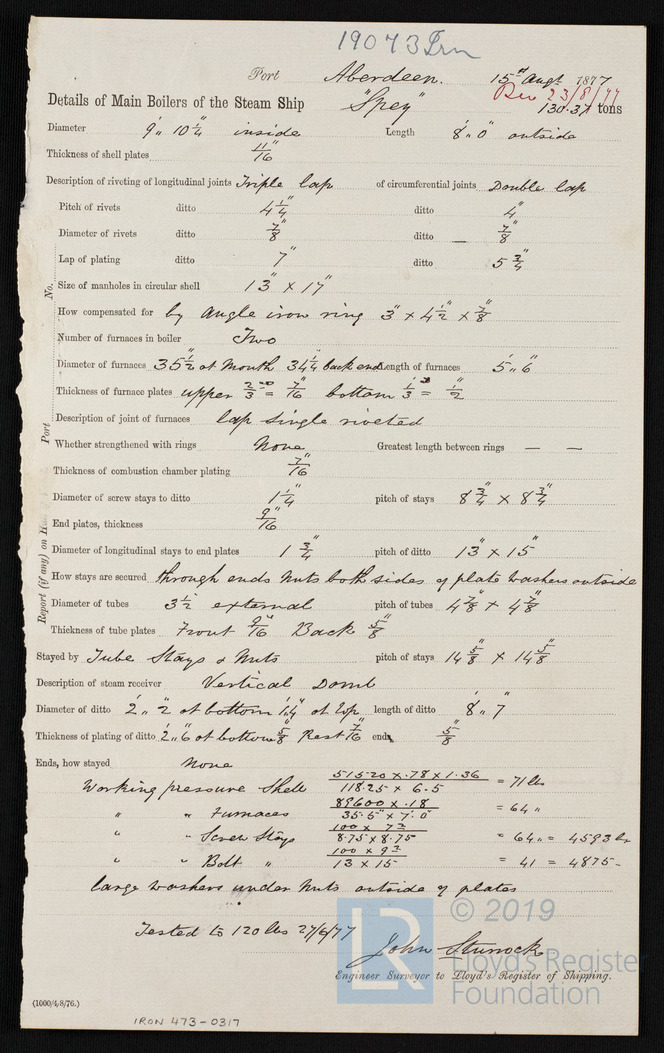 19073 Irn
Port Aberdeen. 15th Augt 1877
Rec 23/8/77
Details of Main Boilers of the Steam Ship "Spey" 130.37 tons
Diameter 9'" 10¼" inside Length 8'" 0" outside
Thickness of shell plates 11/16"
Description of riveting of longitudinal joints Triple lap of circumferential joints Double lap
Pitch of rivets ditto 4¼" ditto 4"
Diameter of rivets ditto 7/8" ditto — 7/8"
Lap of plating ditto 7" ditto 5¾"
Size of manholes in circular shell 13" x 17"
How compensated for by Angle iron ring 3" x 4½" x 7/8"
Number of furnaces in boiler Two
Diameter of furnaces 35½" at Mouth 34¼" back end Length of furnaces 5'" 6"
Thickness of furnace plates upper 2/3 = 7/16" bottom 1/3 = ½"
Description of joint of furnaces lap single riveted
Whether strengthened with rings None Greatest length between rings — —
Thickness of combustion chamber plating 7/16"
Diameter of screw stays to ditto 1¼" pitch of stays 8¾" x 8¾"
End plates, thickness 9/16"
Diameter of longitudinal stays to end plates 1¾" pitch of ditto 13" x 15"
How stays are secured through ends Nuts both sides of plate washers outside
Diameter of tubes 3½" external pitch of tubes 4⅞" x 4⅞"
Thickness of tube plates Front 9/16" Back 5/8"
Stayed by Tube Stays & Nuts pitch of stays 14⅝" x 14⅝"
Description of steam receiver Vertical Domb
Diameter of ditto 2'" 2" at bottom 1'"4" at Top length of ditto 8'" 7"
Thickness of plating of ditto 2'" 6" at bottom 5/8" Rest 7/16" ends 5/8"
Ends, how stayed None
Working pressure Shell 51520 x .78 x 1.36 / 118.25 x 6.5 = 71 lbs
" " Furnaces 89600 x .18 / 35.5" x 7.0 = 64 "
" " Screw Stays / 8.75 x 8.75 = 64 " = 4593 lbs
" " Bolt " / 13 x 15 = 41 = 4875 -
large washers under Nuts outside of plates
Tested to 120 lbs 27/6/77
John Sturrock
Engineer Surveyor to Lloyd's Register of Shipping.
(1000/4/8/76.)
IRON 473-0317
No.
Port
Report (if any) on H
LR
© 2019
Lloyd's Register
Foundation